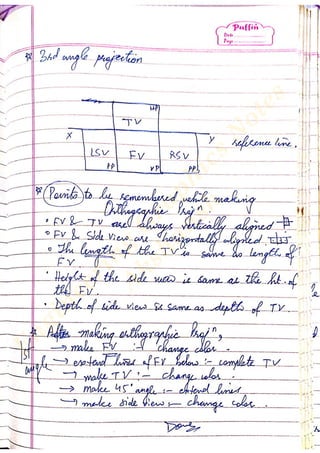 Puffin
Date
Page
* 3rd angle projection
HP
TV
X Y reference line.
LSV FV RSV
PP VP PP
* Points to be remembered while making
Orthographic Projn.
• FV & TV are always vertically aligned
• FV & Side View are horizontally aligned
• The length of the TV is same as length of
FV.
• Height of the side view is same as the ht. of
the FV.
• Depth of side view is same as depth of TV.
* After making orthographic Projn,
1st angle
→ make FV :- change color.
→ extend lines of FV below :- complete TV
→ make TV :- change color.
→ make 45° angle :- extend lines
→ make side view :- change color.
Done